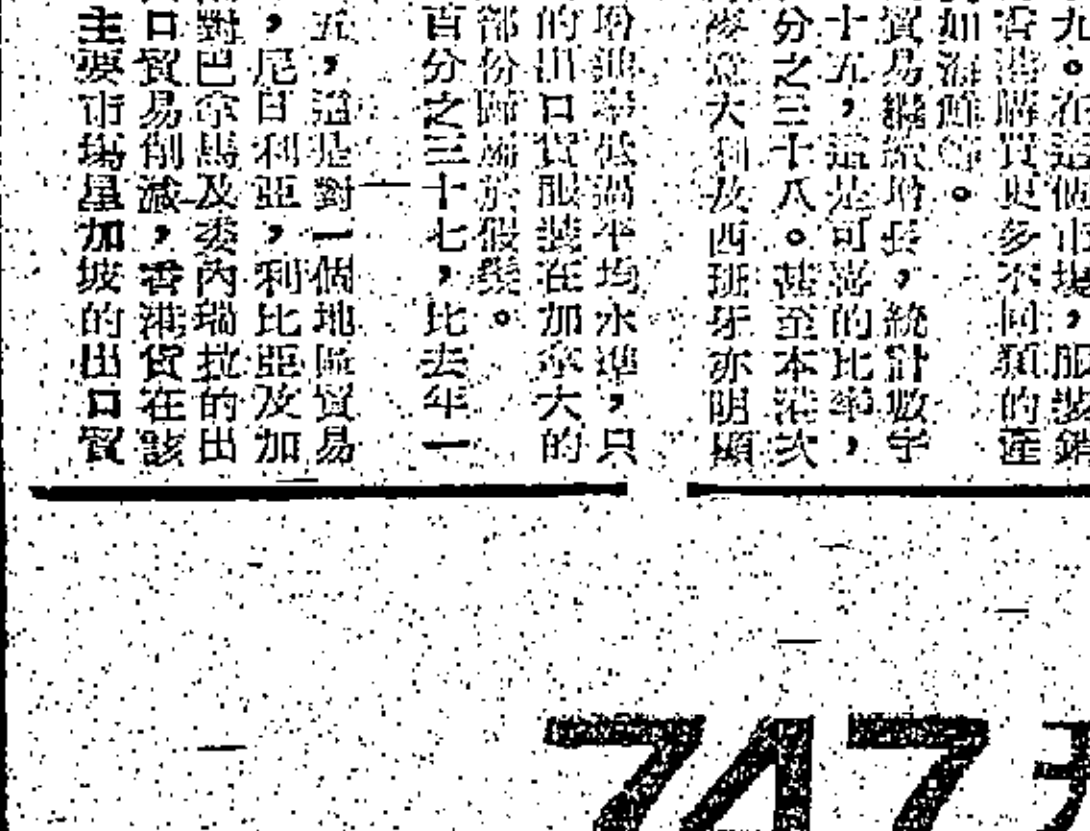 九。在這個市場，服裝銷
香港購買更多不同類的產
加海鮮等。
貿易繼續增長，統計數字
十五，這是可喜的比率，
分之三十八。甚至本港次
意大利及西班牙亦明顯
低過平均水準，只
的出口貨服裝在加拿大的
部份歸屬於假髮。
百分之三十七，比去年一
五，這是對一個地區貿易
，尼日利亞，利比亞及加
對巴拿馬及委內瑞拉的出
口貿易削減，香港貨在該
主要市場星加坡的出口貿
747